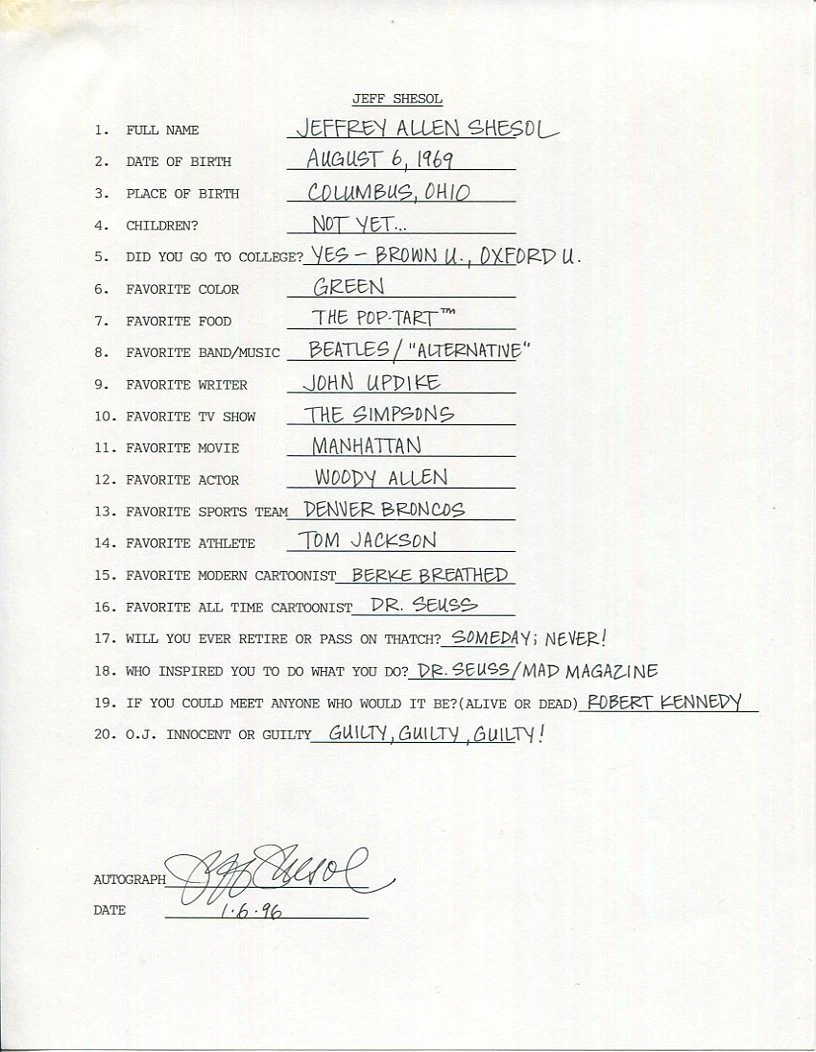 JEFF SHESOL
1. FULL NAME JEFFREY ALLEN SHESOL
2. DATE OF BIRTH AUGUST 6, 1969
3. PLACE OF BIRTH COLUMBUS, OHIO
4. CHILDREN? NOT YET...
5. DID YOU GO TO COLLEGE? YES - BROWN U., OXFORD U.
6. FAVORITE COLOR GREEN
7. FAVORITE FOOD THE POP-TART™
8. FAVORITE BAND/MUSIC BEATLES / "ALTERNATIVE"
9. FAVORITE WRITER JOHN UPDIKE
10. FAVORITE TV SHOW THE SIMPSONS
11. FAVORITE MOVIE MANHATTAN
12. FAVORITE ACTOR WOODY ALLEN
13. FAVORITE SPORTS TEAM DENVER BRONCOS
14. FAVORITE ATHLETE TOM JACKSON
15. FAVORITE MODERN CARTOONIST BERKE BREATHED
16. FAVORITE ALL TIME CARTOONIST DR. SEUSS
17. WILL YOU EVER RETIRE OR PASS ON THATCH? SOMEDAY; NEVER!
18. WHO INSPIRED YOU TO DO WHAT YOU DO? DR. SEUSS/MAD MAGAZINE
19. IF YOU COULD MEET ANYONE WHO WOULD IT BE?(ALIVE OR DEAD) ROBERT KENNEDY
20. O.J. INNOCENT OR GUILTY GUILTY, GUILTY, GUILTY!
AUTOGRAPH Jeff Shesol
DATE 1.6.96